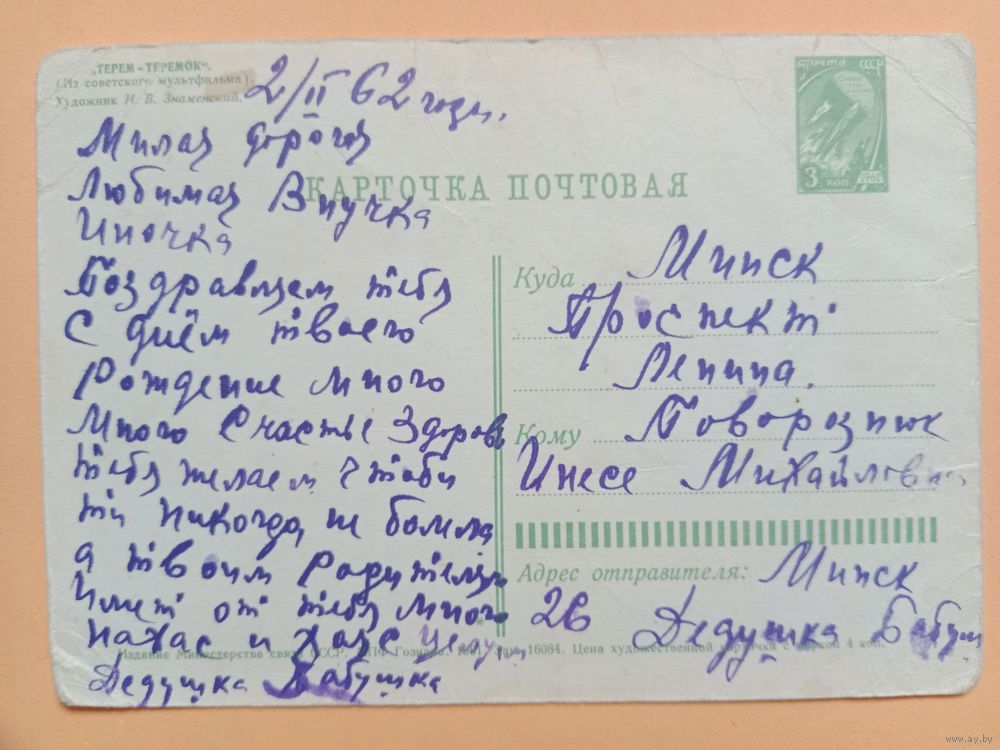 „ТЕРЕМ-ТЕРЕМОК".
(Из советского мультфильма).
Художник И. В. Знаменский.
2/II 62 года.
Милая дорогая
Любимая Внучка
Иночка
Поздравляем тебя
С днём твоего
Рождение много
Много Счастье Здоровь
тебя желаем чтоби
ти никогда не болила
а твоим Родителям
Имет от тебя много
нахас и
Дедушка Бабушка
ПОЧТА СССР
3 КОП
1961
КАРТОЧКА ПОЧТОВАЯ
Куда Минск
Проспект
Ленина.
Кому Поворознюк
Инесе Михайловна
Адрес отправителя: Минск
2в Дедушка Бабуш
Издание Министерства связи СССР. 16084. Цена художественной карточки с маркой 4 коп.
www.ay.by